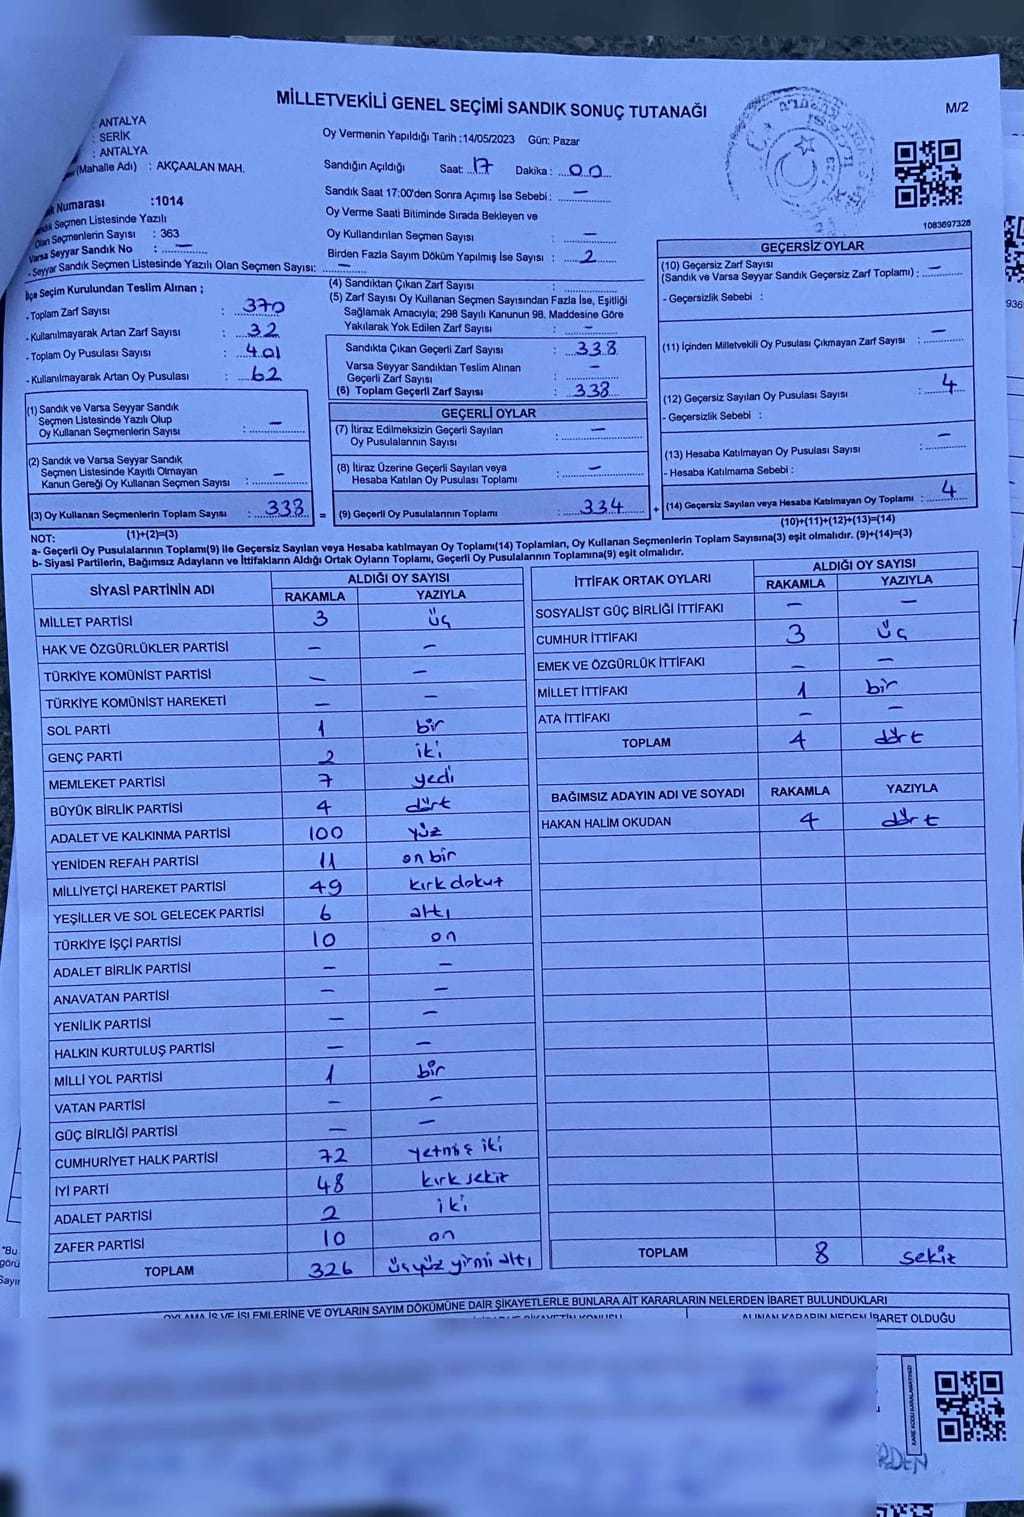 MİLLETVEKİLİ GENEL SEÇİMİ SANDIK SONUÇ TUTANAĞI
M/2
ANTALYA
: SERİK
: ANTALYA
(Mahalle Adı) : AKÇAALAN MAH.
Numarası :1014
Seçmen Listesinde Yazılı
Olan Seçmenlerin Sayısı : 363
Varsa Seyyar Sandık No : –
- Seyyar Sandık Seçmen Listesinde Yazılı Olan Seçmen Sayısı: –
Oy Vermenin Yapıldığı Tarih :14/05/2023 Gün: Pazar
Sandığın Açıldığı Saat: 17 Dakika : 00
Sandık Saat 17:00'den Sonra Açımış İse Sebebi : –
Oy Verme Saati Bitiminde Sırada Bekleyen ve
Oy Kullandırılan Seçmen Sayısı : –
Birden Fazla Sayım Döküm Yapılmış İse Sayısı : 2
1083697328
İlçe Seçim Kurulundan Teslim Alınan ;
- Toplam Zarf Sayısı : 370
- Kullanılmayarak Artan Zarf Sayısı : 32
- Toplam Oy Pusulası Sayısı : 401
- Kullanılmayarak Artan Oy Pusulası : 62
(1) Sandık ve Varsa Seyyar Sandık
Seçmen Listesinde Yazılı Olup
Oy Kullanan Seçmenlerin Sayısı : –
(2) Sandık ve Varsa Seyyar Sandık
Seçmen Listesinde Kayıtlı Olmayan
Kanun Gereği Oy Kullanan Seçmen Sayısı : –
(3) Oy Kullanan Seçmenlerin Toplam Sayısı : 338
(1)+(2)=(3)
(4) Sandıktan Çıkan Zarf Sayısı :
(5) Zarf Sayısı Oy Kullanan Seçmen Sayısından Fazla İse, Eşitliği
Sağlamak Amacıyla; 298 Sayılı Kanunun 98. Maddesine Göre
Yakılarak Yok Edilen Zarf Sayısı : –
Sandıkta Çıkan Geçerli Zarf Sayısı : 338
Varsa Seyyar Sandıktan Teslim Alınan
Geçerli Zarf Sayısı : –
(6) Toplam Geçerli Zarf Sayısı : 338
GEÇERLİ OYLAR
(7) İtiraz Edilmeksizin Geçerli Sayılan
Oy Pusulalarının Sayısı : –
(8) İtiraz Üzerine Geçerli Sayılan veya
Hesaba Katılan Oy Pusulası Toplamı : –
= (9) Geçerli Oy Pusulalarının Toplamı : 334
GEÇERSİZ OYLAR
(10) Geçersiz Zarf Sayısı
(Sandık ve Varsa Seyyar Sandık Geçersiz Zarf Toplamı) : –
- Geçersizlik Sebebi :
(11) İçinden Milletvekili Oy Pusulası Çıkmayan Zarf Sayısı : –
(12) Geçersiz Sayılan Oy Pusulası Sayısı : 4
- Geçersizlik Sebebi :
(13) Hesaba Katılmayan Oy Pusulası Sayısı : –
- Hesaba Katılmama Sebebi :
+ (14) Geçersiz Sayılan veya Hesaba Katılmayan Oy Toplamı : 4
(10)+(11)+(12)+(13)=(14)
NOT:
a- Geçerli Oy Pusulalarının Toplamı(9) ile Geçersiz Sayılan veya Hesaba katılmayan Oy Toplamı(14) Toplamları, Oy Kullanan Seçmenlerin Toplam Sayısına(3) eşit olmalıdır. (9)+(14)=(3)
b- Siyasi Partilerin, Bağımsız Adayların ve İttifakların Aldığı Ortak Oyların Toplamı, Geçerli Oy Pusulalarının Toplamına(9) eşit olmalıdır.
SİYASİ PARTİNİN ADI ALDIĞI OY SAYISI
RAKAMLA YAZIYLA
MİLLET PARTİSİ 3 üç
HAK VE ÖZGÜRLÜKLER PARTİSİ – –
TÜRKİYE KOMÜNİST PARTİSİ – –
TÜRKİYE KOMÜNİST HAREKETİ – –
SOL PARTİ 1 bir
GENÇ PARTİ 2 iki
MEMLEKET PARTİSİ 7 yedi
BÜYÜK BİRLİK PARTİSİ 4 dört
ADALET VE KALKINMA PARTİSİ 100 yüz
YENİDEN REFAH PARTİSİ 11 on bir
MİLLİYETÇİ HAREKET PARTİSİ 49 kırk dokuz
YEŞİLLER VE SOL GELECEK PARTİSİ 6 altı
TÜRKİYE İŞÇİ PARTİSİ 10 on
ADALET BİRLİK PARTİSİ – –
ANAVATAN PARTİSİ – –
YENİLİK PARTİSİ – –
HALKIN KURTULUŞ PARTİSİ – –
MİLLİ YOL PARTİSİ 1 bir
VATAN PARTİSİ – –
GÜÇ BİRLİĞİ PARTİSİ – –
CUMHURİYET HALK PARTİSİ 72 yetmiş iki
İYİ PARTİ 48 kırk sekiz
ADALET PARTİSİ 2 iki
ZAFER PARTİSİ 10 on
TOPLAM 326 üçyüz yirmi altı
İTTİFAK ORTAK OYLARI ALDIĞI OY SAYISI
RAKAMLA YAZIYLA
SOSYALİST GÜÇ BİRLİĞİ İTTİFAKI – –
CUMHUR İTTİFAKI 3 üç
EMEK VE ÖZGÜRLÜK İTTİFAKI – –
MİLLET İTTİFAKI 1 bir
ATA İTTİFAKI – –
TOPLAM 4 dört
BAĞIMSIZ ADAYIN ADI VE SOYADI RAKAMLA YAZIYLA
HAKAN HALİM OKUDAN 4 dört
TOPLAM 8 sekiz
OYLAMA İŞ VE İŞLEMLERİNE VE OYLARIN SAYIM DÖKÜMÜNE DAİR ŞİKAYETLERLE BUNLARA AİT KARARLARIN NELERDEN İBARET BULUNDUKLARI
ALINAN KARARIN NEDEN İBARET OLDUĞU
"Bu
görü
Sayır
936
KARE KODU KARALAMAYINIZ!